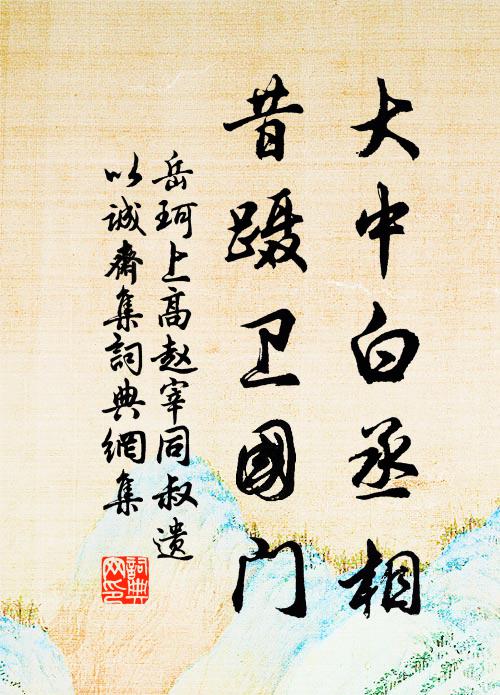 大中白丞相
昔蹑卫国门
岳珂上高赵宰同叔遗
以诚斋集詞典網集
詞典
网印